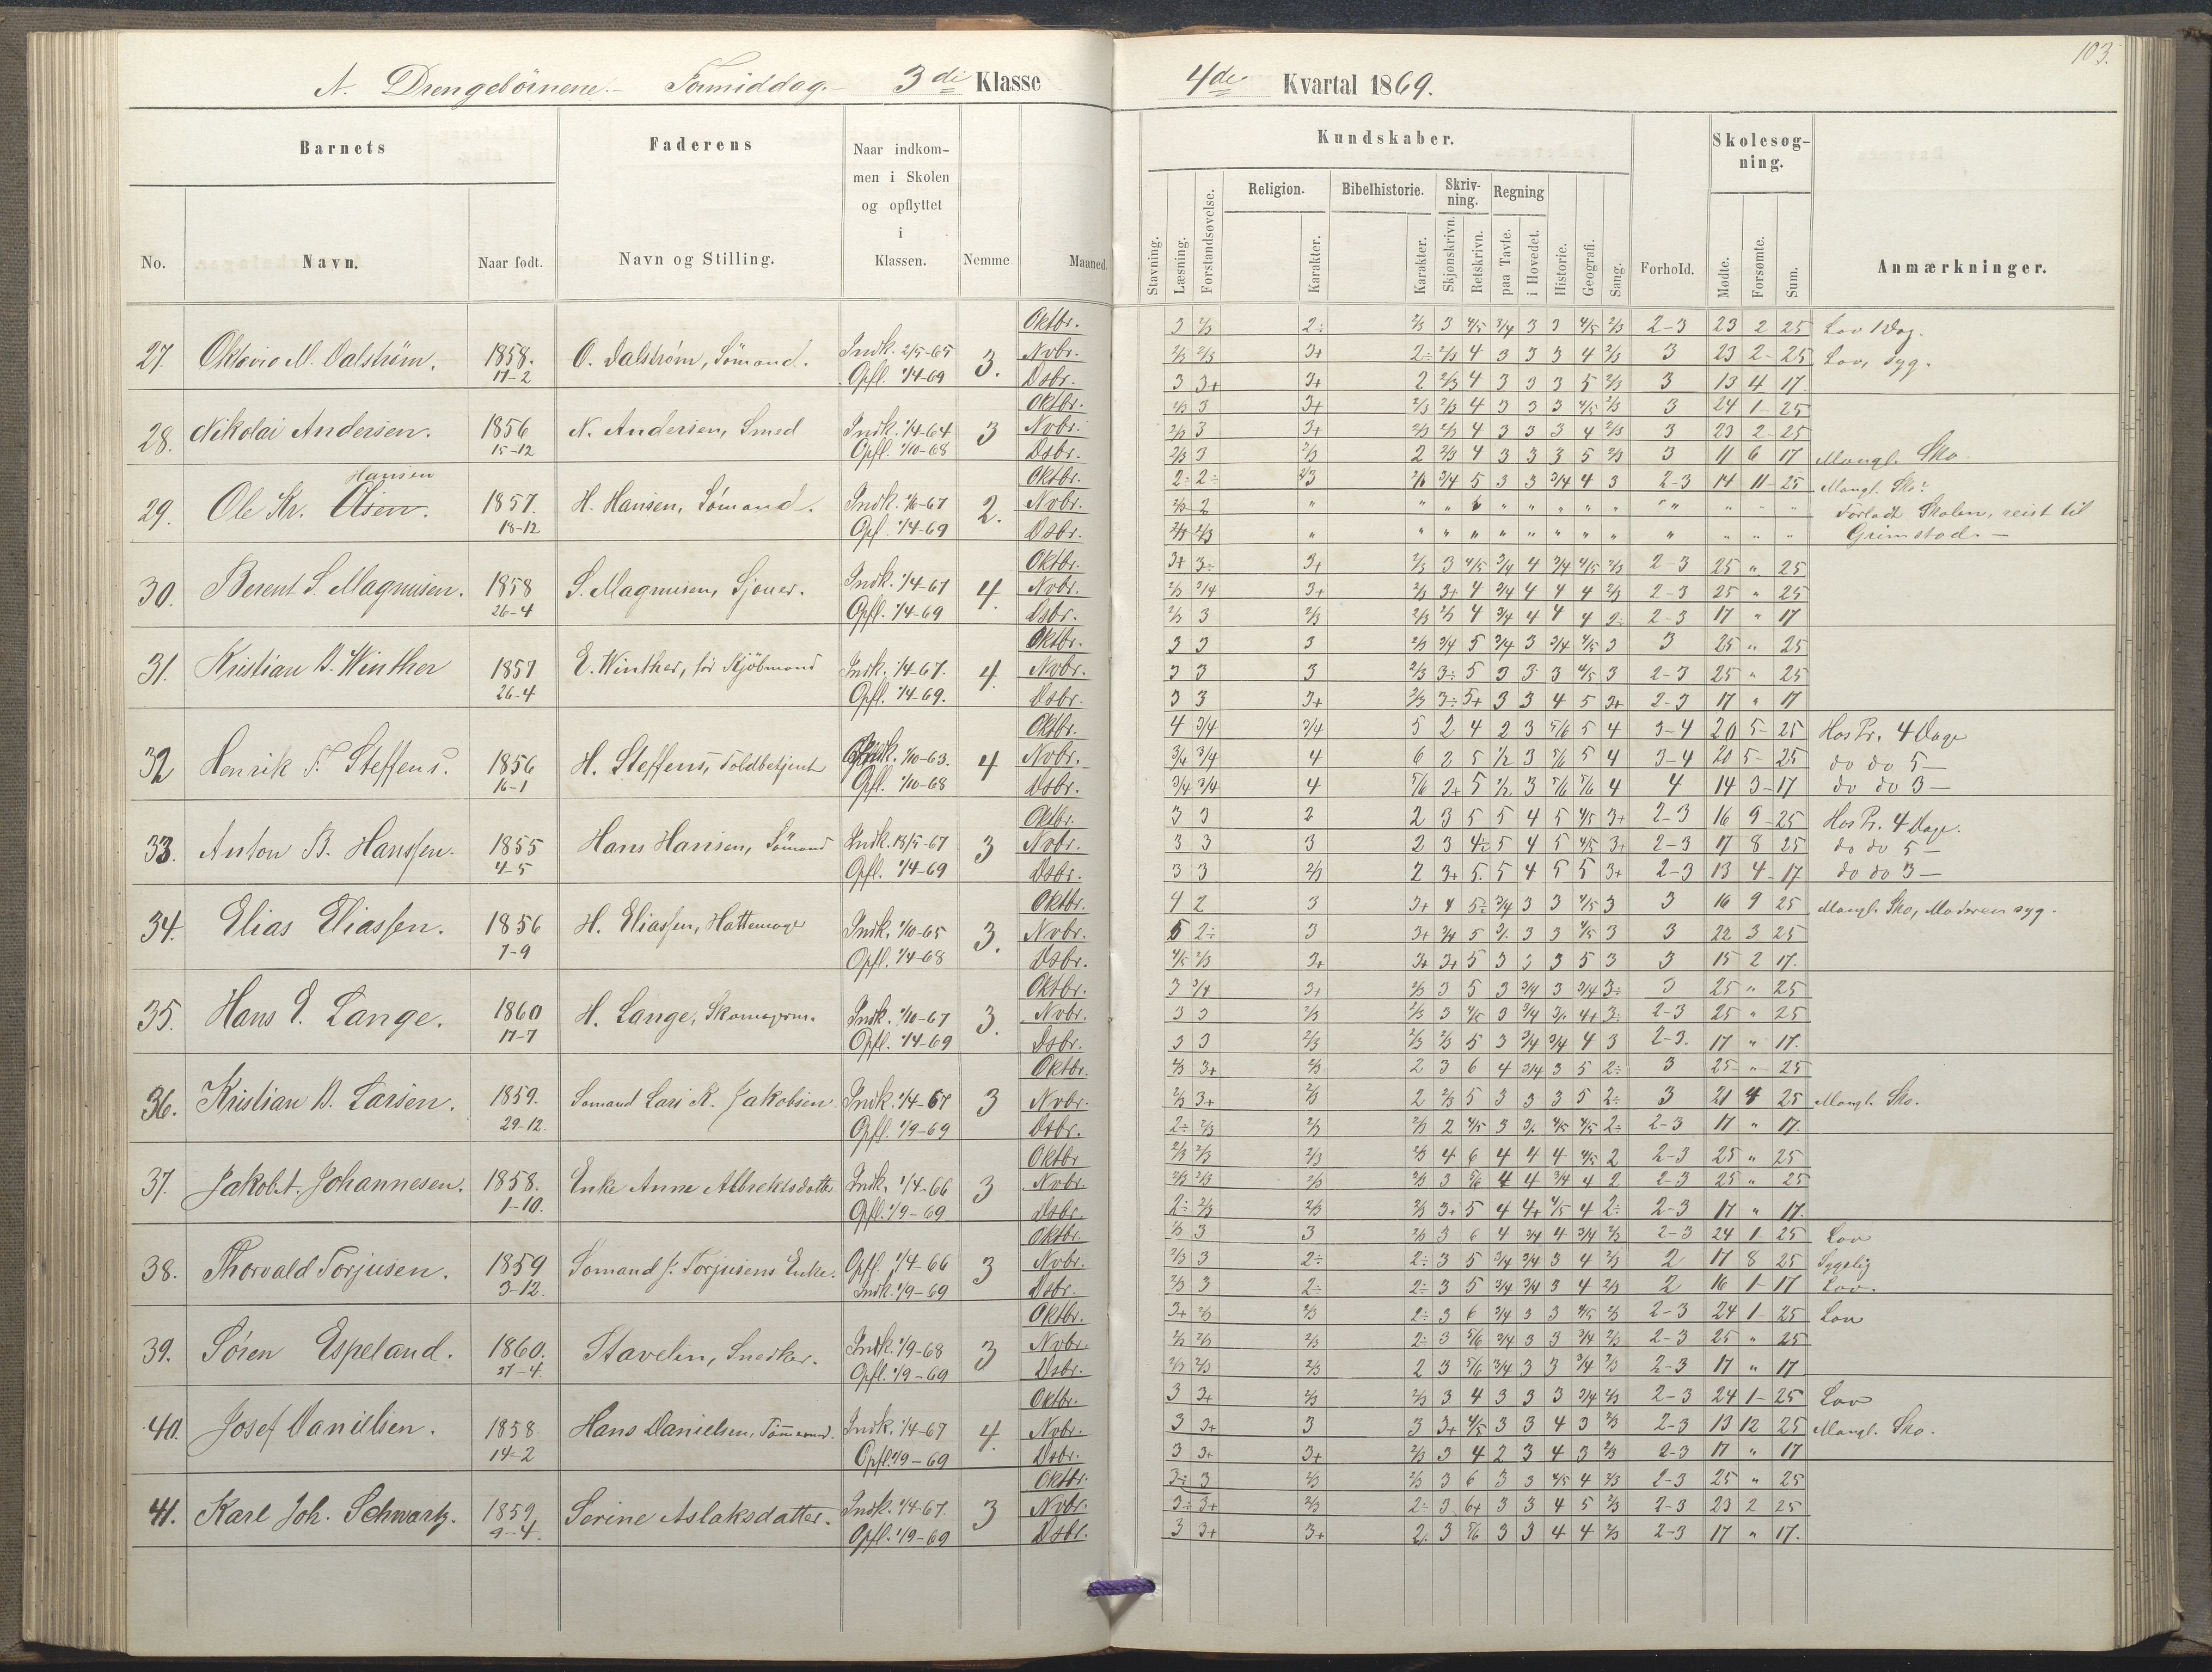 103.
A. Drengebörnene. - Formiddag. - 3die Klasse 4de Kvartal 1869.
Barnets
Faderens
Naar indkom-
men i Skolen
og opflyttet
i
Klassen.
No.
Navn.
Naar født.
Navn og Stilling.
Nemme
Maaned.
Kundskaber.
Skolesøg-
ning.
Stavning.
Læsning.
Forstandsøvelse.
Religion.
Karakter.
Bibelhistorie.
Karakter.
Skriv-
ning.
Skjønskrivn.
Retskrivn.
Regning
paa Tavle.
i Hovedet.
Historie.
Geografi.
Sang.
Forhold.
Mødte.
Forsømte.
Sum.
Anmærkninger.
27. Oktavio M. Dalström. 1858. 17-2 O. Dalström, Sömand. Indk. 2/5-65 Opfl. 1/4-69 3.
Oktbr. 3 2/3 2÷ 2/3 3 4/5 3/4 3 3 4/5 2/3 2-3 23 2 25 Lov 1 Dag.
Nvbr. 2/3 2/3 3+ 2÷ 2/3 4 3 3 3 4 2/3 3 23 2 25 Lov, syg.
Dsbr. 3 3+ 3+ 2 2/3 4 3 3 3 5 2/3 3 13 4 17.
28. Nikolai Andersen. 1856 15-12 N. Andersen, Smed Indk. 1/4-64 Opfl. 1/10-68 3
Oktbr. 2/3 3 3+ 2/3 2/3 4 3 3 3 4/5 2/3 3 24 1 25
Nvbr. 2/3 3 3+ 2/3 2/3 4 3 3 3 4 2/3 3 23 2 25
Dsbr. 2/3 3 2/3 2 2/3 4 3 3 3 5 2/3 3 11 6 17 Mangl. Sko
29. Ole Kr. Olsen. Hansen 1857. 18-12 H. Hansen, Sömand. Indk. 67 Opfl. 1/4-69 2.
Oktbr. 2÷ 2÷ 2/3 2/3 3/4 5 3 3 3/4 4 3 2-3 14 11 25 Mangl. Sko.
Nvbr. 2/3 2 " " " " " " " " " " " " " Forladt Skolen, reist til
Dsbr. 2/3 2/3 " " " " " " " " " " " " " Grimstad. -
30. Berent S. Magnusen. 1858 26-4 S. Magnusen, Sjouer. Indk. 1/4-67 Opfl. 1/4-69 4.
Oktbr. 3+ 3÷ 3+ 2/3 3 4/5 3/4 4 3/4 4/5 2/3 2-3 25 " 25
Nvbr. 2/3 3/4 3+ 2/3 3+ 4 3/4 4 4 4 2/3 2-3 25 " 25
Dsbr. 2/3 3 2/3 2/3 2/3 4 3/4 4 4 4 2÷ 2-3 17 " 17
31. Kristian B. Winther 1857 26-4 E. Winther, för Kjöbmand Indk. 1/4-67. Opfl. 1/4-69. 4.
Oktbr. 3 3 3 2/3 3/4 5 3/4 3 3/4 4/5 3 3 25 " 25
Nvbr. 3 3 3 2/3 3÷ 5 3 3 3 4/5 3 2-3 25 " 25
Dsbr. 3 3 3+ 2/3 3÷ 5+ 3 3 4 5 3+ 2-3 17 " 17
32 Henrik F. Steffens. 1856 16-1 H. Steffens, Toldbetjent Indk. 1/10-63. Opfl. 1/10-68 4
Oktbr. 4 3/4 3/4 5 2 4 2 3 5/6 5 4 3-4 20 5 25 Hos Pr. 4 Dage
Nvbr. 3/4 3/4 4 6 2 5 1/2 3 5/6 5 4 3-4 20 5 25 do do 5 -
Dsbr. 3/4 3/4 4 5/6 2+ 5 1/2 3 5/6 5/6 4 4 14 3 17 do do 3 -
33. Anton B. Hanssen. 1855 4-5 Hans Hansen, Sömand Indk. 13/5-67 Opfl. 1/4-69 3
Oktbr. 3 3 2 2 3 5 5 4 5 4/5 3+ 2-3 16 9 25 Hos Pr. 4 Dage.
Nvbr. 3 3 3 2 3 4÷ 5 4 5 4/5 3+ 2-3 17 8 25 do do 5 -
Dsbr. 3 3 2/3 2 3+ 5 5 4 5 5 3+ 2-3 13 4 17 do do 3 -
34. Elias Eliassen. 1856 7-9 H. Eliassen, Hattemager Indk. 1/10-65 Opfl. 1/4-68 3.
Oktbr. 4 2 3 3+ 4 5÷ 3/4 3 3 4/5 3 3 16 9 25 Mangl. Sko, Moderen syg.
Nvbr. 5 2÷ 3 3+ 3/4 5 3 3 4/5 3 3 22 3 25
Dsbr. 4/5 2/3 3+ 3+ 3+ 5 3 3 3 5 3 3 15 2 17.
35. Hans E. Lange. 1860 17-7 H. Lange, Skomagerm. Indk. 1/10-67 Opfl. 1/4-69 3.
Oktbr. 3 3/4 3+ 2/3 3 5 3 3/4 3 3/4 3÷ 3 25 " 25
Nvbr. 3 3 2/3 2/3 3 4/5 3 3/4 4+ 3÷ 2-3 25 " 25
Dsbr. 3 3 2/3 2/3 2/3 5 3 3/4 3/4 4 3 2-3. 17 " 17.
36. Kristian B. Larsen. 1859. 29-12. Sömand Lars K. Jakobsen Indk. 1/4-67 Opfl. 1/9-69 3
Oktbr. 2/3 3+ 2/3 2 3 6 4 3/4 3 5 2÷ 3 25 " 25
Nvbr. 2/3 3+ 2/3 2 2/3 5 3 3 3 5 2÷ 3 21 4 25 Mangl. Sko.
Dsbr. 2÷ 2/3 2/3 2/3 2 4/5 3 4/5 4/5 2÷ 2-3 17 " 17.
37. Jakob A. Johannesen. 1858. 1-10. Enke Anne Albrektsdatter Indk. 1/4-66 Opfl. 1/9-69 3
Oktbr. 2/3 2/3 2/3 2/3 4 6 4 4 4 4/5 2 2-3 25 " 25
Nvbr. 2/3 2/3 2/3 2/3 3 5/6 4 4 3/4 4 2 2-3 25 " 25
Dsbr. 2÷ 2/3 2/3 2/3 3+ 5 4 4+ 4/5 4 2÷ 2-3 17 " 17.
38. Thorvald Torjusen. 1859 3-12. Sömand J. Torjusens Enke. Opfl. 1/4-66 Indk. 1/9-69 3
Oktbr. 2/3 3 3 2/3 3 6 4 3/4 4 3/4 2/3 2-3 24 1 25 Lov
Nvbr. 2/3 3 2÷ 2÷ 3 5 3/4 3/4 3 4 2/3 2 17 8 25 Sygelig
Dsbr. 2/3 3 2÷ 2÷ 3 5 3/4 3/4 3 4 2/3 2 16 1 17 Lov.
39. Sören Espeland. 1860. 27-4. Stavelin, Snedker. Indk. 1/9-68 Opfl. 1/9-69 3
Oktbr. 3+ 2/3 2/3 2÷ 3 6 3/4 3 3 4/5 2/3 2-3 24 1 25 Lov
Nvbr. 2/3 2/3 2/3 2÷ 3 5/6 3/4 3 3 3/4 2/3 2-3 25 " 25
Dsbr. 2/3 2/3 2/3 2 3 5/6 3/4 3 3 3/4 2/3 2-3 17 " 17
40. Josef Danielsen. 1858. 14-2 Hans Danielsen, Tömmermd. Indk. 1/4-67 Opfl. 1/9-69 4.
Oktbr. 3 3+ 2/3 2/3 3 4 3 3 3 3/4 2/3 2-3 24 1 25 Lov
Nvbr. 3 3+ 3 3 3+ 4/5 3 3 4 3 2/3 2-3 13 12 25 Mangl. Sko.
Dsbr. 3 3+ 3+ 2/3 3 4 2 3 4 3 2/3 2-3 17 " 17
41. Karl Joh. Schwartz. 1859 9-4. Serine Aslaksdatter. Indk. 1/4-67. Opfl. 1/9-69 3
Oktbr. 3÷ 3 2/3 2/3 3 6 3 3 4/5 4 2/3 2-3 25 " 25
Nvbr. 3÷ 3+ 2/3 2÷ 3 6+ 3 3 4 5 2/3 2-3 23 2 25
Dsbr. 3 3+ 3+ 2 3 5/6 3 3 4 4 2/3 2-3 17 " 17.